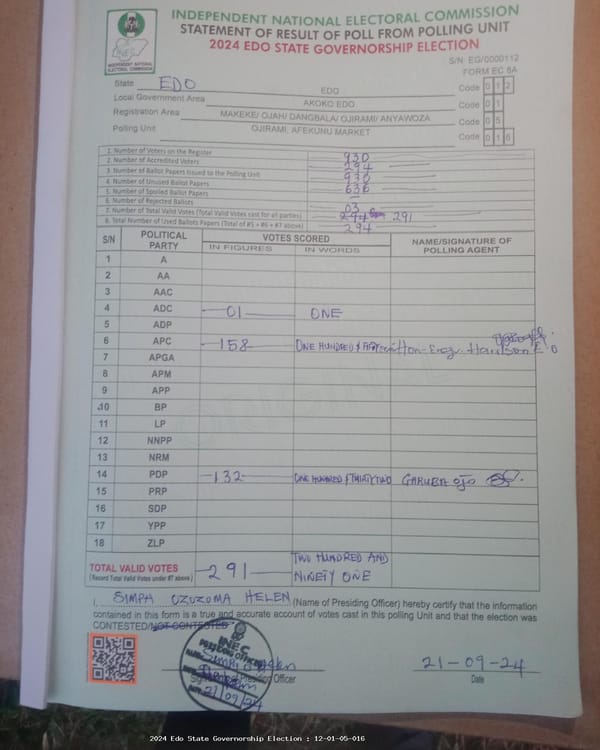 INDEPENDENT NATIONAL ELECTORAL COMMISSION
STATEMENT OF RESULT OF POLL FROM POLLING UNIT
2024 EDO STATE GOVERNORSHIP ELECTION
INEC
INDEPENDENT NATIONAL ELECTORAL COMMISSION
S/N EG/0000112
FORM EC 8A
State EDO EDO Code 0 1 2
Local Government Area AKOKO EDO Code 0 1
Registration Area MAKEKE/ OJAH/ DANGBALA/ OJIRAMI/ ANYAWOZA Code 0 5
Polling Unit OJIRAMI, AFEKUNU MARKET Code 0 1 6
1. Number of Voters on the Register 930
2. Number of Accredited Voters 294
3. Number of Ballot Papers Issued to the Polling Unit 930
4. Number of Unused Ballot Papers 636
5. Number of Spoiled Ballot Papers –
6. Number of Rejected Ballots 03
7. Number of Total Valid Votes (Total Valid Votes cast for all parties) 294 291
8. Total Number of Used Ballots Papers (Total of #5 + #6 + #7 above) 294
S/N POLITICAL PARTY VOTES SCORED NAME/SIGNATURE OF POLLING AGENT
IN FIGURES IN WORDS
1 A
2 AA
3 AAC
4 ADC 01 ONE
5 ADP
6 APC 158 ONE HUNDRED & Hon. Engr. Harrison E O
7 APGA
8 APM
9 APP
10 BP
11 LP
12 NNPP
13 NRM
14 PDP 132 ONE HUNDRED & THIRTY TWO GARUBA OJO
15 PRP
16 SDP
17 YPP
18 ZLP
TOTAL VALID VOTES 291 TWO HUNDRED AND
(Record Total Valid Votes under #7 above) NINETY ONE
I, SIMPH OZUZOMA HELEN (Name of Presiding Officer) hereby certify that the information
contained in this form is a true and accurate account of votes cast in this polling Unit and that the election was
CONTESTED/NOT CONTESTED
INEC
PRESIDING OFFICER
21/09/24
Signature of Presiding Officer
21-09-24
Date
2024 Edo State Governorship Election : 12-01-05-016